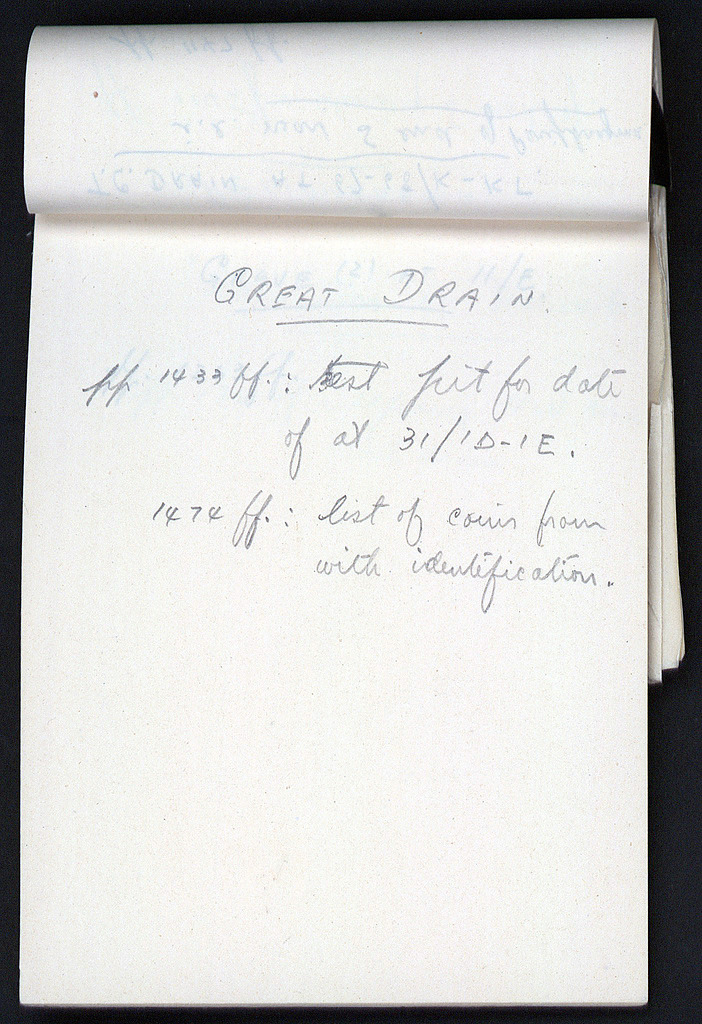 GREAT DRAIN.
pp 1433 ff.: test pit for date
of at 31/1D-1E.
1474 ff.: list of coins from
with identification.